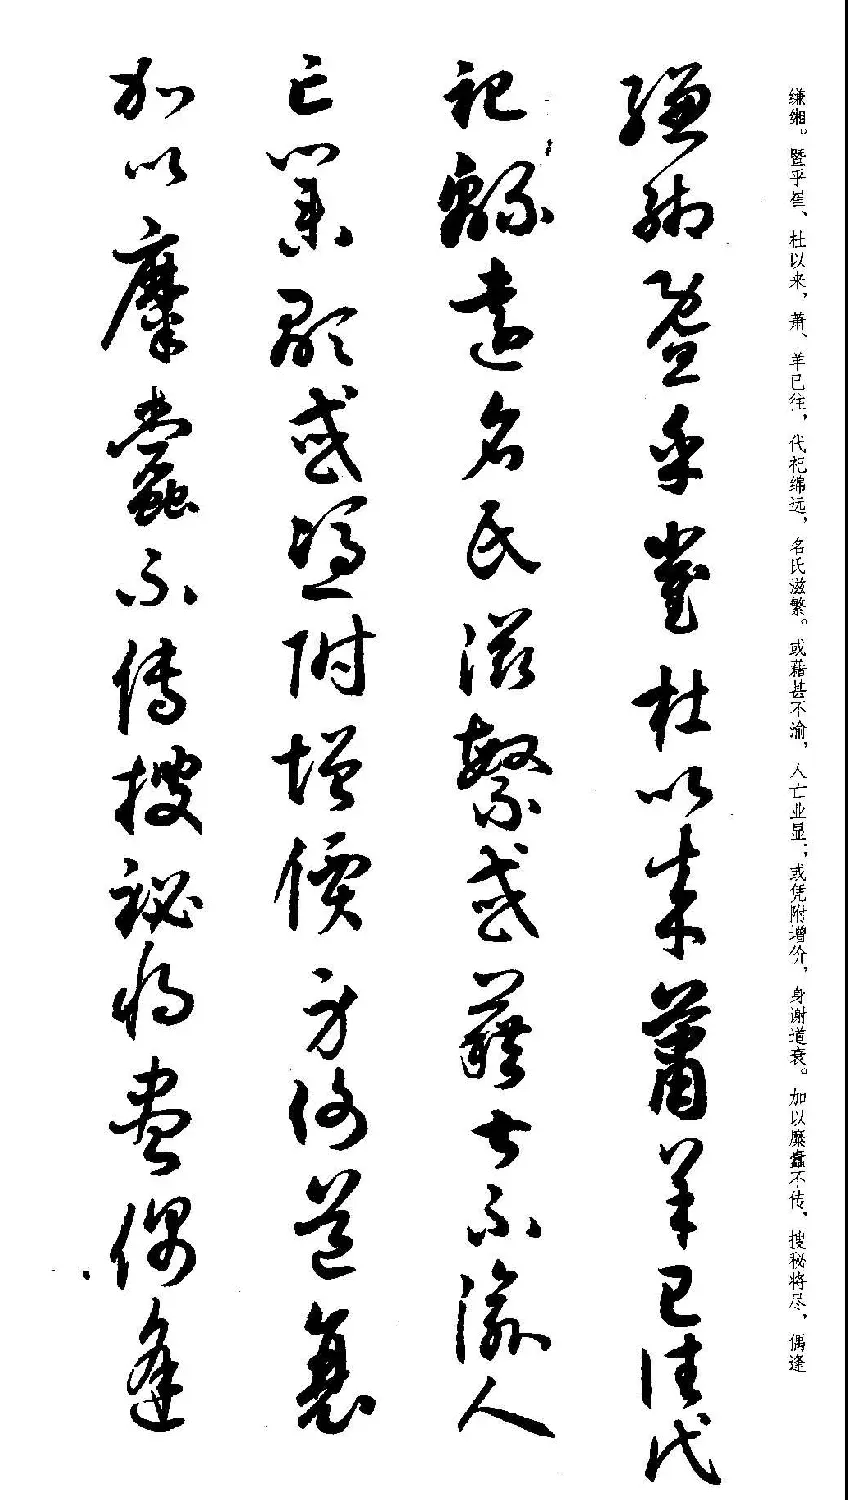 缣缃。暨乎崔、杜以来，萧、羊已往，代祀绵远，名氏滋繁。或藉甚不渝，人亡业显；或凭附增价，身谢道衰。加以糜蠹不传，搜秘将尽，偶逢
縑緗暨乎崔杜以来蕭羊已往代
祀緜遠名氏滋繁或藉甚不渝人
亡業顯或憑附增價身謝道衰
加以糜蠹不傳搜祕将盡偶逢